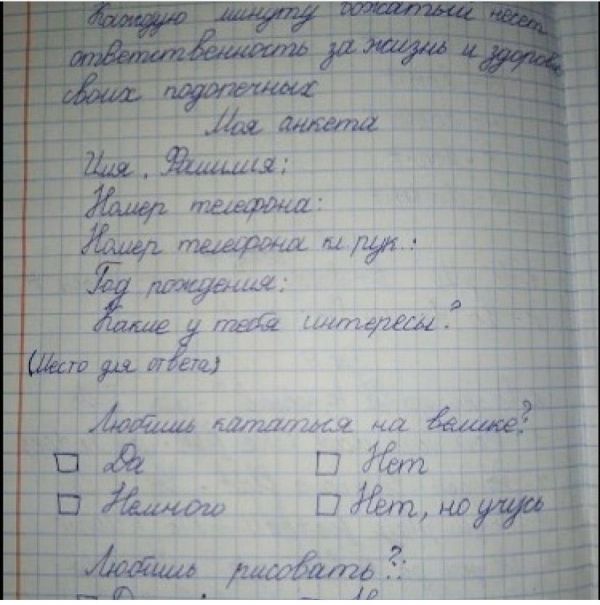 Каждую минуту вожатый несет
ответственность за жизнь и здоровье
своих подопечных
Моя анкета
Имя, Фамилия:
Номер телефона:
Номер телефона кл рук.:
Год рождения:
Какие у тебя интересы?
(Место для ответа)
Любишь кататься на велике?
Да Нет
Немного Нет, но учусь
Любишь рисовать?: